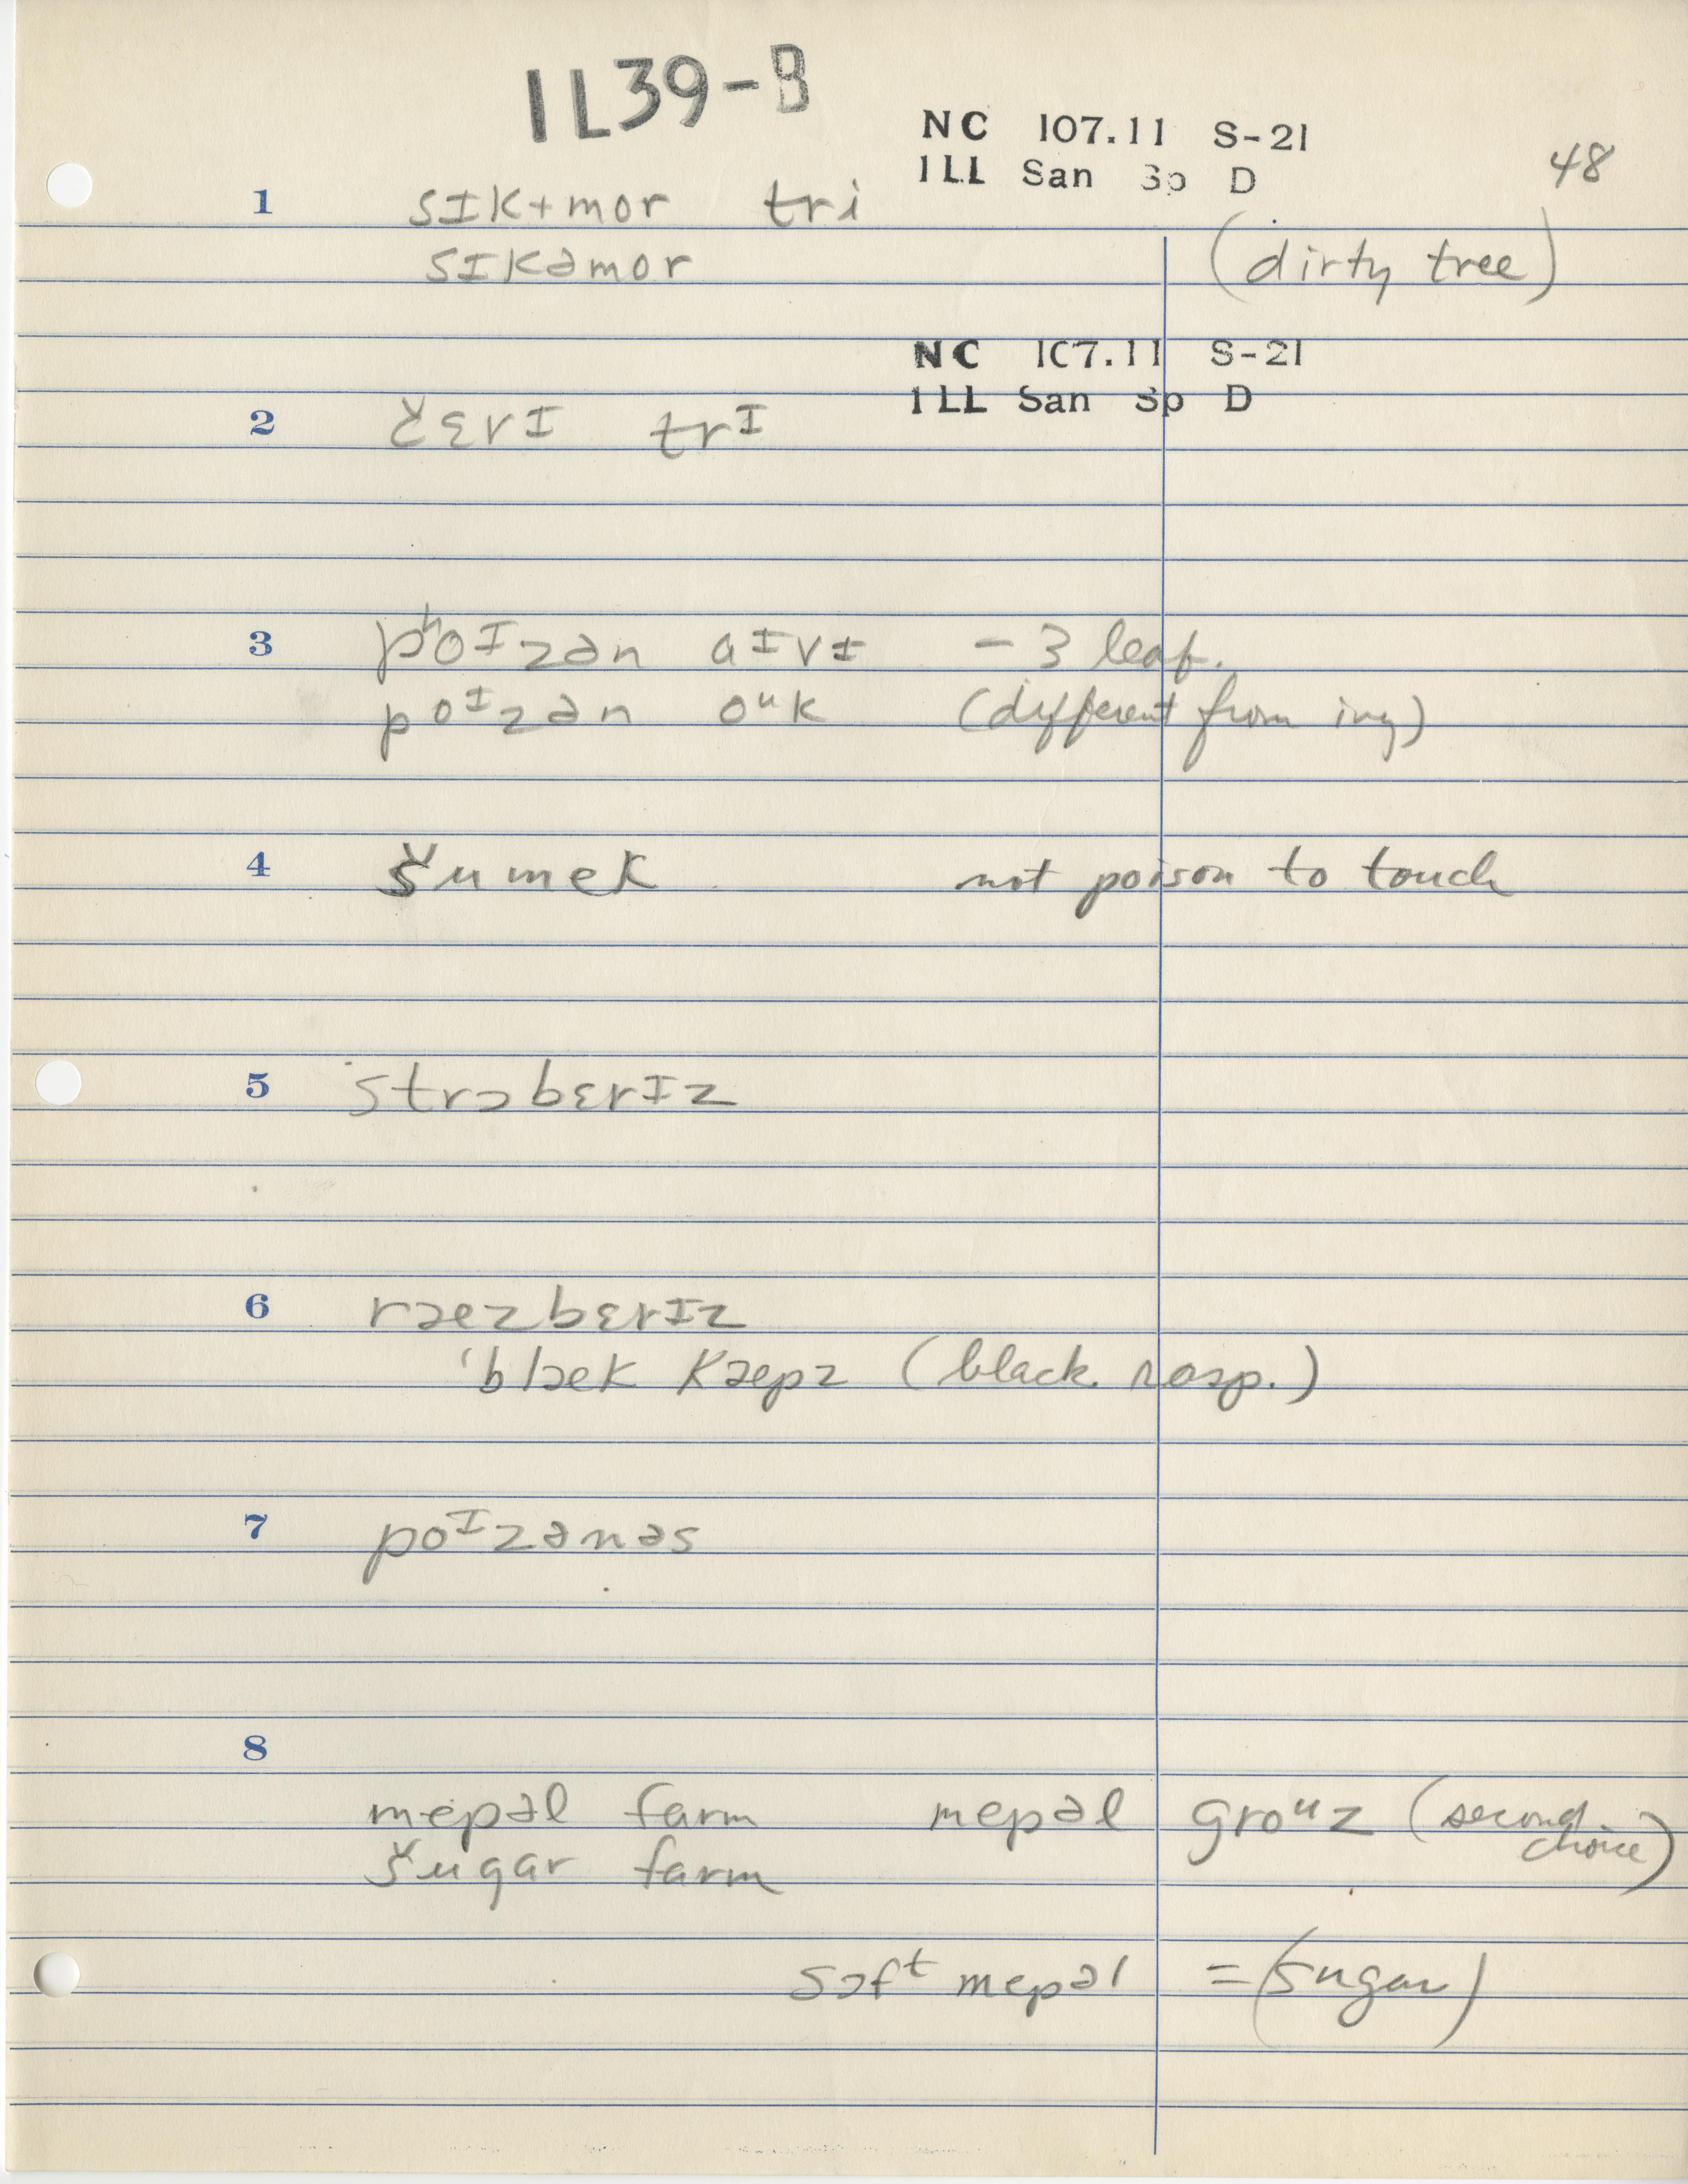 IL39-B
NC 107.11 S-21
ILL San Sp D
48
1 sɪkɨmor tri
sɪkəmor (dirty tree)
NC 107.11 S-21
ILL San Sp D
2 čɛrɪ trɪ
3 pʰoᶦzən aɪvɨ – 3 leaf.
poᶦzən oᵘk (different from ivy)
4 šumek not poison to touch
5 strɔbɛrɪz
6 ræzbɛrɪz
'blæk kæpz (black rasp.)
7 poᶦzənəs
8
mepəl farm mepəl groᵘz (second choice)
šugar farm
sɔfᵗ mepəl = (sugar)